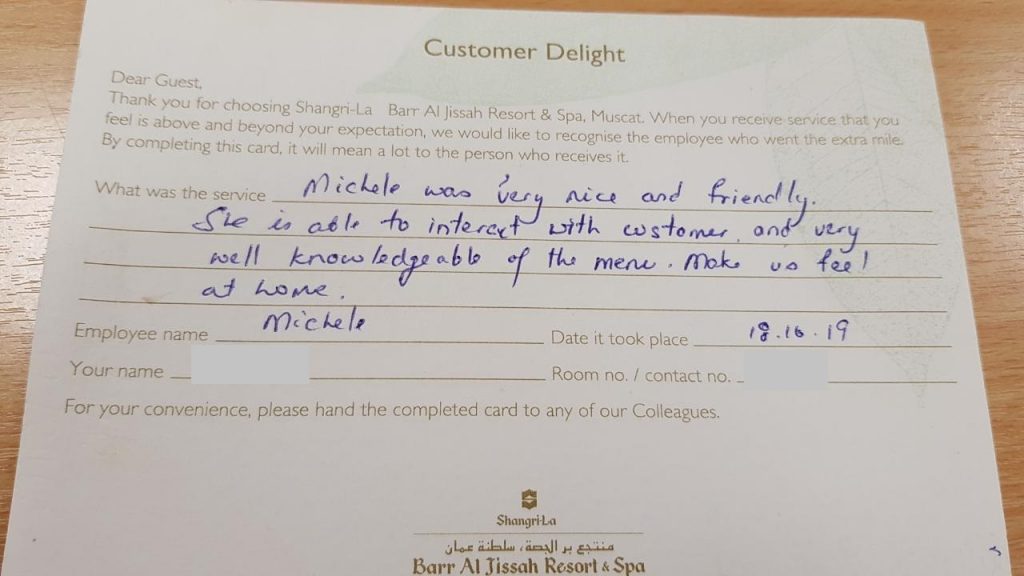 Customer Delight
Dear Guest,
Thank you for choosing Shangri-La Barr Al Jissah Resort & Spa, Muscat. When you receive service that you
feel is above and beyond your expectation, we would like to recognise the employee who went the extra mile.
By completing this card, it will mean a lot to the person who receives it.
What was the service Michele was very nice and friendly.
She is able to interact with customer and very
well knowledgeable of the menu. Make us feel
at home.
Employee name Michele Date it took place 18.16.19
Your name Room no. / contact no.
For your convenience, please hand the completed card to any of our Colleagues.
Shangri-La
منتجع بر الجصة، سلطنة عمان
Barr Al Jissah Resort & Spa